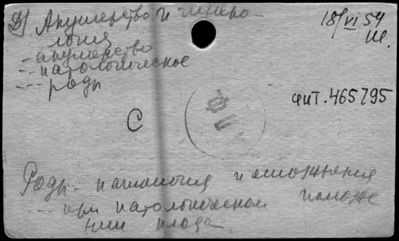 2) Акушерство и гинеко-
логия
- акушерство
- патологическое
- роды
18/VI 54
ш.
фит. 465795
С
Роды - патология и осложнения
- при патологическом положе
нии плода